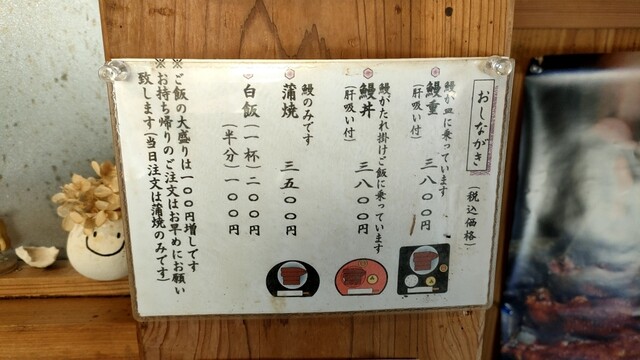 おしながき
(税込価格)
鰻が皿に乗っています
鰻重 三八〇〇円
(肝吸い付)
鰻がたれ掛けご飯に乗っています
鰻丼 三八〇〇円
(肝吸い付)
鰻のみです
蒲焼 三五〇〇円
白飯(一杯)二〇〇円
(半分)一〇〇円
※ご飯の大盛りは一〇〇円増しです
※お持ち帰りのご注文はお早めにお願い
致します(当日注文は蒲焼のみです)